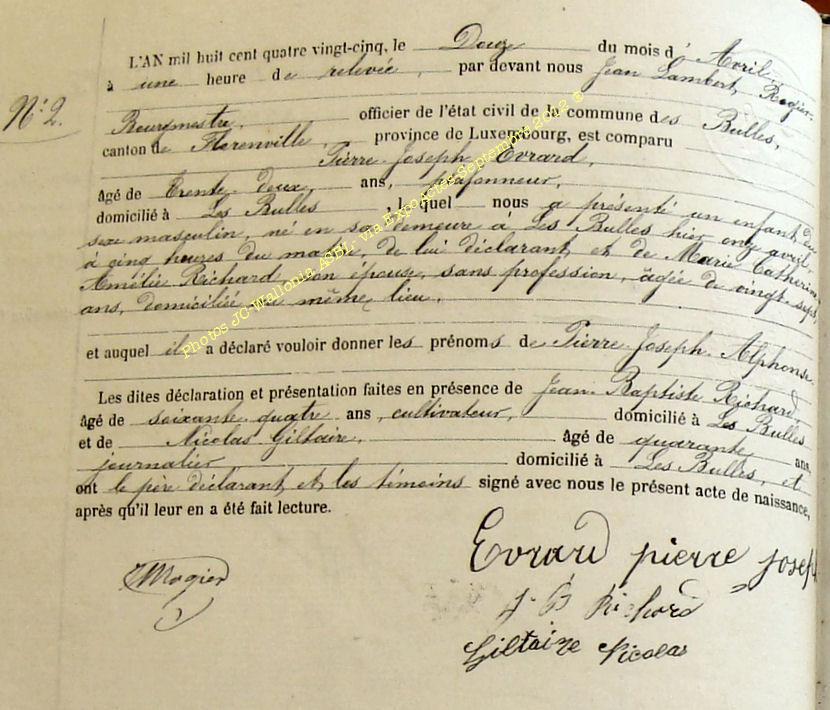 L'AN mil huit cent quatre vingt-cinq, le Douze du mois d' Avril,
à une heure de relevée, par devant nous Jean Lambert
N° 2.
Bourgmestre, officier de l'état civil de la commune des Bulles,
canton de Florenville, province de Luxembourg, est comparu
Pierre Joseph Evrard,
âgé de trente-deux ans, plafonneur,
domicilié à Les Bulles, lequel nous a présenté un enfant du
sexe masculin, né en sa demeure à Les Bulles hier onze avril,
à cinq heures du matin, de lui déclarant et de Marie Catherine
Amélie Richard son épouse, sans profession, âgée de vingt-sept
ans, domiciliée au même lieu.
et auquel il a déclaré vouloir donner les prénoms de Pierre-Joseph-Alphonse.
Les dites déclaration et présentation faites en présence de Jean-Baptiste Richard,
âgé de soixante-quatre ans, cultivateur, domicilié à Les Bulles
et de Nicolas Giltaire, âgé de quarante ans,
journalier domicilié à Les Bulles, et
ont le père déclarant et les témoins signé avec nous le présent acte de naissance,
après qu'il leur en a été fait lecture.
Evrard pierre joseph
J-B Richard
Giltaire Nicolas
Photos JC-Wallonia ASBL via ExpoActes Septembre 2012 ©